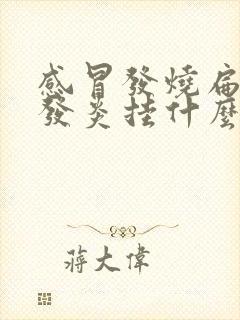 感冒發燒扁
發炎挂什麼
蔣大偉